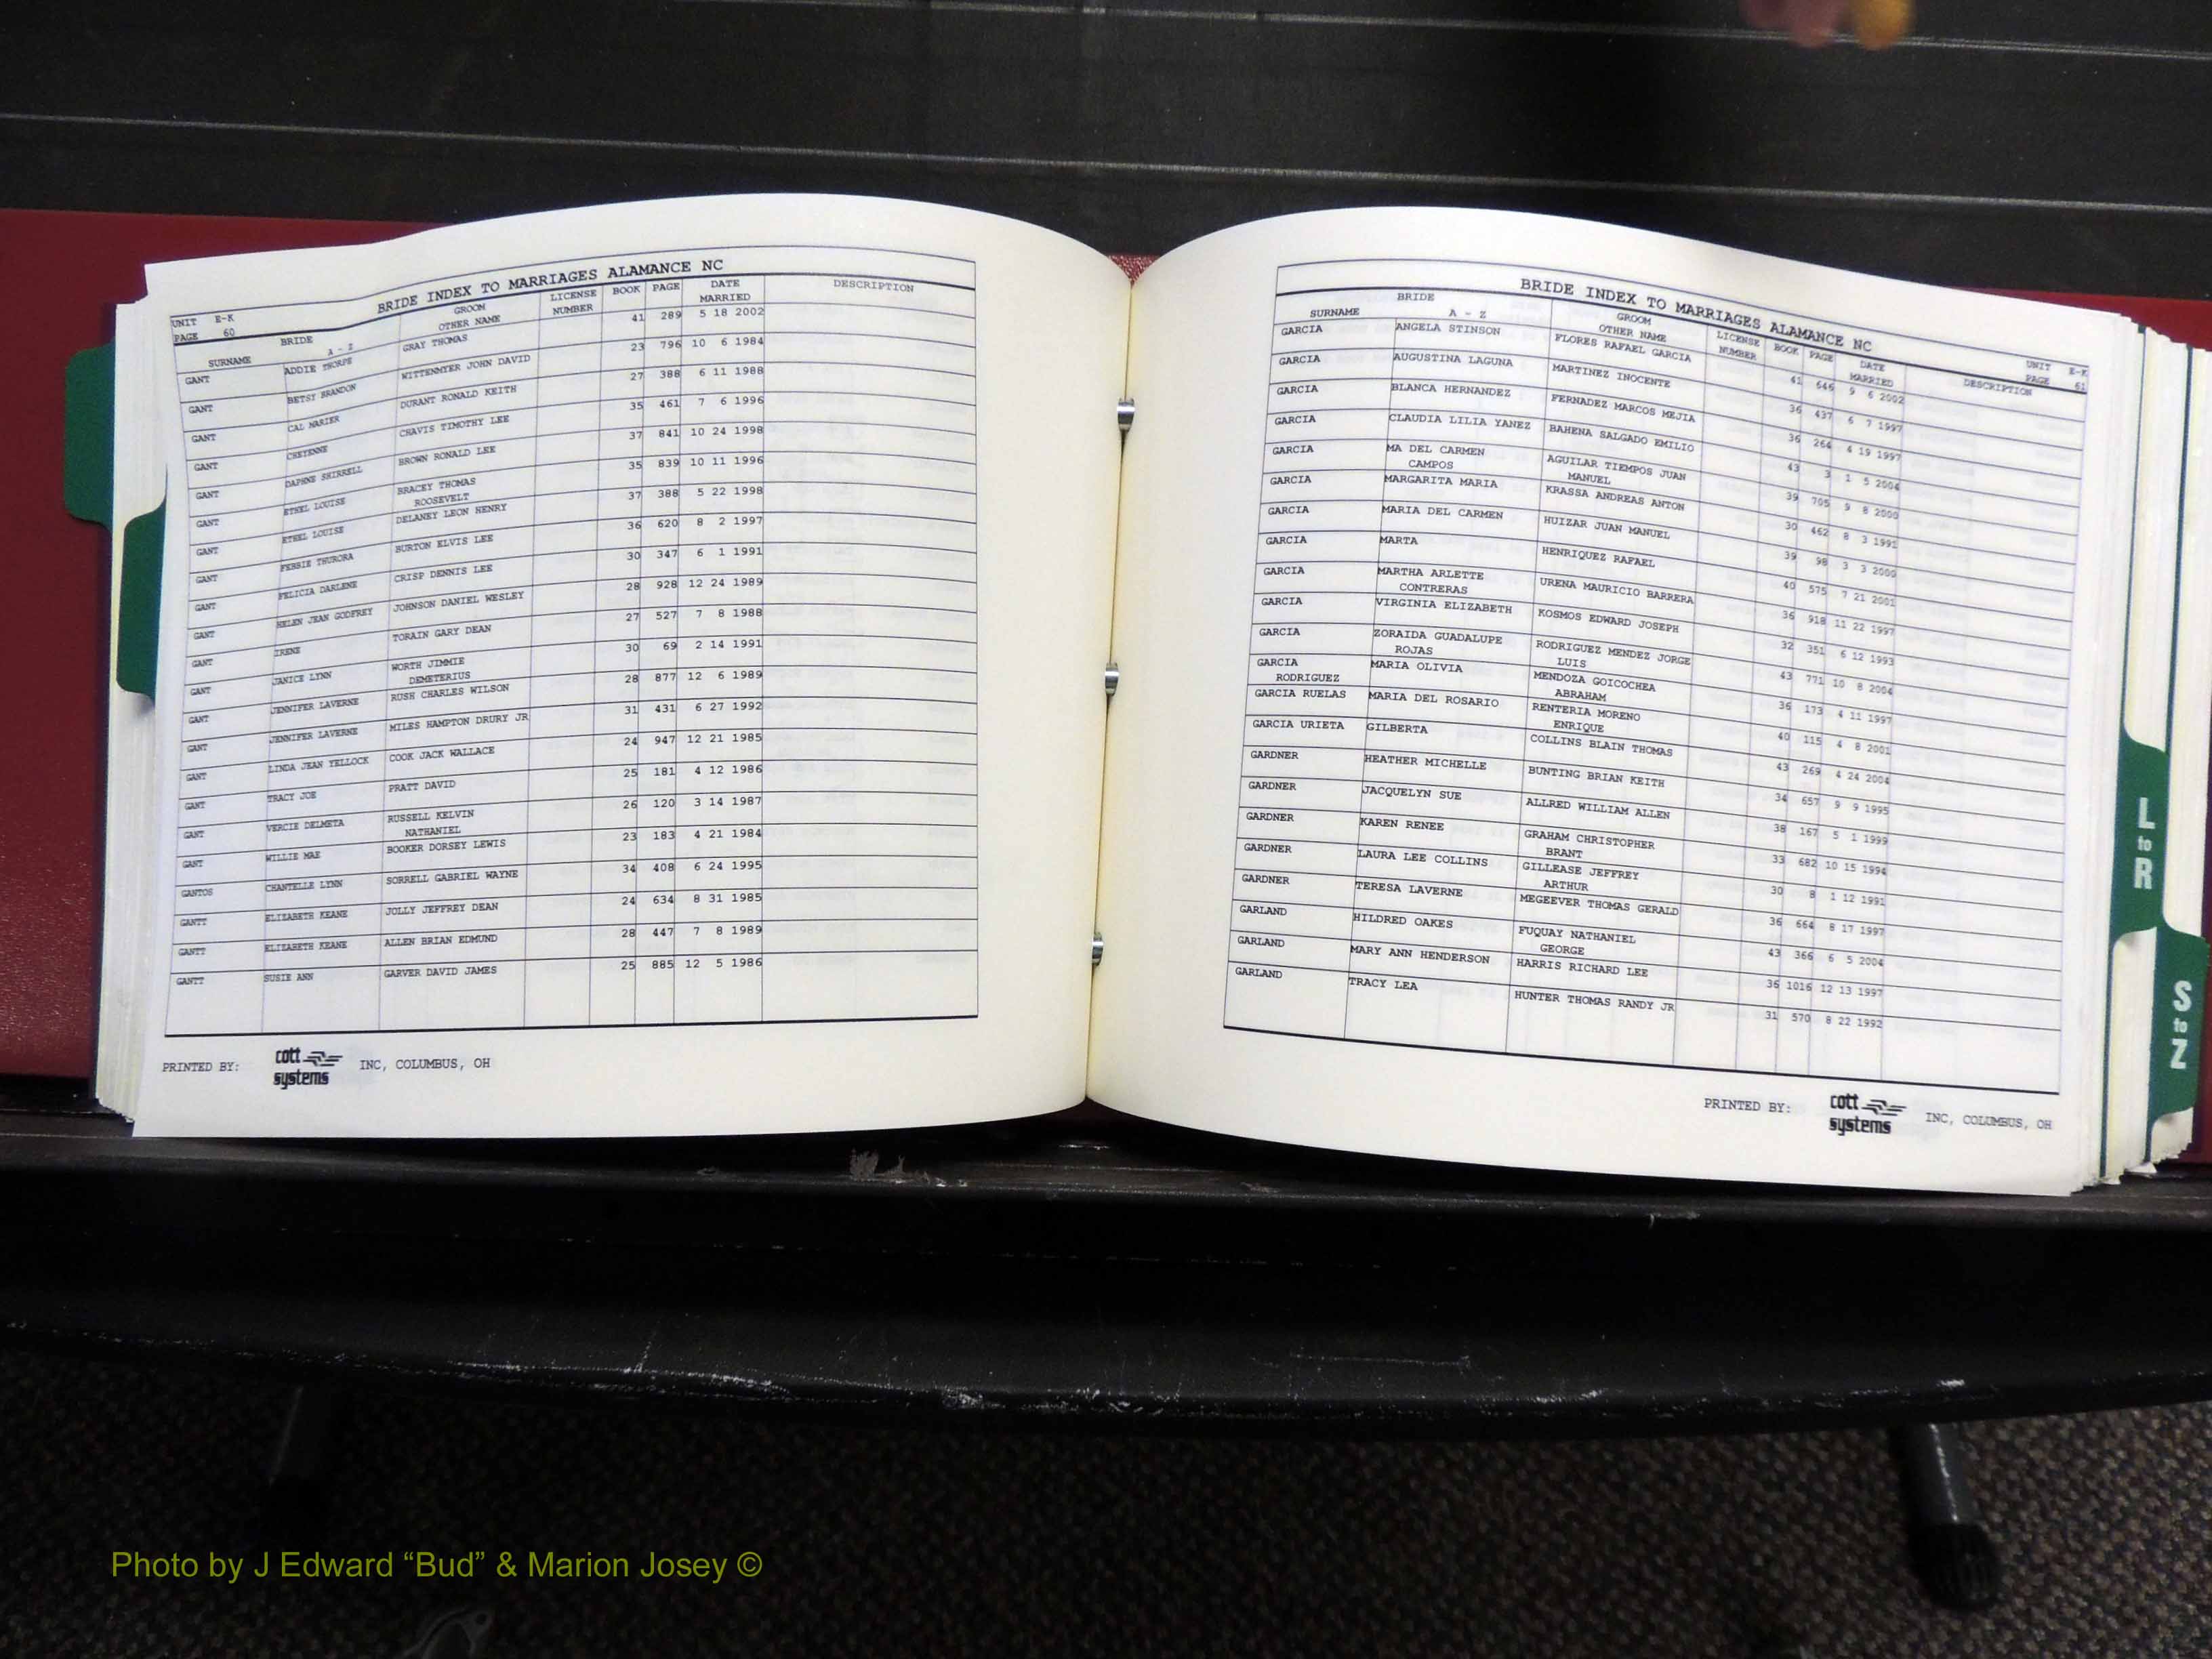 BRIDE INDEX TO MARRIAGES ALAMANCE NC
UNIT E-K
PAGE 60
SURNAME BRIDE A - Z GROOM OTHER NAME LICENSE NUMBER BOOK PAGE DATE MARRIED DESCRIPTION
GANT ADDIE THORPE GRAY THOMAS 41 289 5 18 2002
GANT BETSY BRANDON WITTENMYER JOHN DAVID 23 796 10 6 1984
GANT CAL MARIER DURANT RONALD KEITH 27 388 6 11 1988
GANT CHEYENNE CHAVIS TIMOTHY LEE 35 461 7 6 1996
GANT DAPHNE SHIRRELL BROWN RONALD LEE 37 841 10 24 1998
GANT ETHEL LOUISE BRACEY THOMAS 35 839 10 11 1996
ROOSEVELT
GANT ETHEL LOUISE DELANEY LEON HENRY 37 388 5 22 1998
GANT FEBBIE THURORA BURTON ELVIS LEE 36 620 8 2 1997
GANT FELICIA DARLENE CRISP DENNIS LEE 30 347 6 1 1991
GANT HELEN JEAN GODFREY JOHNSON DANIEL WESLEY 28 928 12 24 1989
GANT IRENE TORAIN GARY DEAN 27 527 7 8 1988
GANT JANICE LYNN WORTH JIMMIE 30 69 2 14 1991
DEMETERIUS
GANT JENNIFER LAVERNE RUSH CHARLES WILSON 28 877 12 6 1989
GANT JENNIFER LAVERNE MILES HAMPTON DRURY JR 31 431 6 27 1992
GANT LINDA JEAN YELLOCK COOK JACK WALLACE 24 947 12 21 1985
GANT TRACY JOE PRATT DAVID 25 181 4 12 1986
GANT VERCIE DELMETA RUSSELL KELVIN 26 120 3 14 1987
NATHANIEL
GANT WILLIE MAE BOOKER DORSEY LEWIS 23 183 4 21 1984
GANTOS CHANTELLE LYNN SORRELL GABRIEL WAYNE 34 408 6 24 1995
GANTT ELIZABETH KEANE JOLLY JEFFREY DEAN 24 634 8 31 1985
GANTT ELIZABETH KEANE ALLEN BRIAN EDMUND 28 447 7 8 1989
GANTT SUSIE ANN GARVER DAVID JAMES 25 885 12 5 1986
PRINTED BY: cott systems INC, COLUMBUS, OH
BRIDE INDEX TO MARRIAGES ALAMANCE NC
UNIT E-K
PAGE 61
SURNAME BRIDE A - Z GROOM OTHER NAME LICENSE NUMBER BOOK PAGE DATE MARRIED DESCRIPTION
GARCIA ANGELA STINSON FLORES RAFAEL GARCIA 41 646 9 6 2002
GARCIA AUGUSTINA LAGUNA MARTINEZ INOCENTE 36 437 6 7 1997
GARCIA BLANCA HERNANDEZ FERNADEZ MARCOS MEJIA 36 264 4 19 1997
GARCIA CLAUDIA LILIA YANEZ BAHENA SALGADO EMILIO 43 3 1 5 2004
GARCIA MA DEL CARMEN AGUILAR TIEMPOS JUAN 39 705 9 8 2000
CAMPOS MANUEL
GARCIA MARGARITA MARIA KRASSA ANDREAS ANTON 30 462 8 3 1991
GARCIA MARIA DEL CARMEN HUIZAR JUAN MANUEL 39 98 3 3 2000
GARCIA MARTA HENRIQUEZ RAFAEL 40 575 7 21 2001
GARCIA MARTHA ARLETTE URENA MAURICIO BARRERA 36 918 11 22 1997
CONTRERAS
GARCIA VIRGINIA ELIZABETH KOSMOS EDWARD JOSEPH 32 351 6 12 1993
GARCIA ZORAIDA GUADALUPE RODRIGUEZ MENDEZ JORGE 43 771 10 8 2004
ROJAS LUIS
GARCIA MARIA OLIVIA MENDOZA GOICOCHEA 36 173 4 11 1997
RODRIGUEZ ABRAHAM
GARCIA RUELAS MARIA DEL ROSARIO RENTERIA MORENO 40 115 4 8 2001
ENRIQUE
GARCIA URIETA GILBERTA COLLINS BLAIN THOMAS 43 269 4 24 2004
GARDNER HEATHER MICHELLE BUNTING BRIAN KEITH 34 657 9 9 1995
GARDNER JACQUELYN SUE ALLRED WILLIAM ALLEN 38 167 5 1 1999
GARDNER KAREN RENEE GRAHAM CHRISTOPHER 33 682 10 15 1994
BRANT
GARDNER LAURA LEE COLLINS GILLEASE JEFFREY 30 8 1 12 1991
ARTHUR
GARDNER TERESA LAVERNE MEGEEVER THOMAS GERALD 36 664 8 17 1997
GARLAND HILDRED OAKES FUQUAY NATHANIEL 43 366 6 5 2004
GEORGE
GARLAND MARY ANN HENDERSON HARRIS RICHARD LEE 36 1016 12 13 1997
GARLAND TRACY LEA HUNTER THOMAS RANDY JR 31 570 8 22 1992
PRINTED BY: cott systems INC, COLUMBUS, OH
L to R
S to Z
Photo by J Edward “Bud” & Marion Josey ©